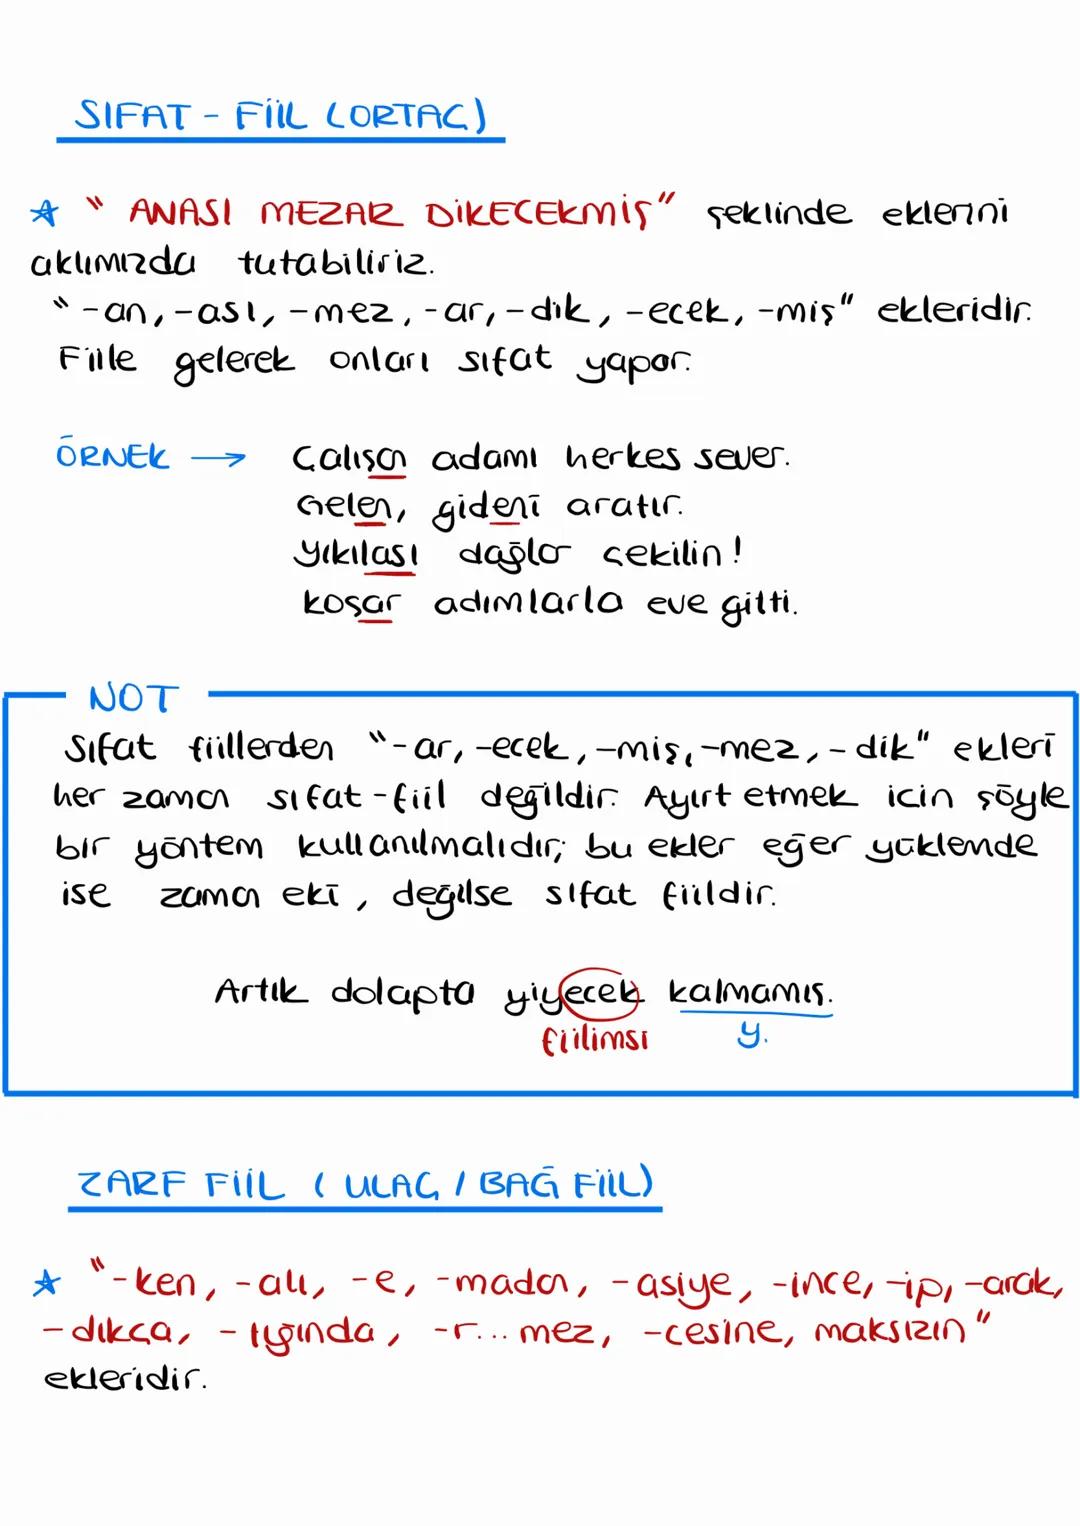 SIFAT - FİİL (ORTAÇ)
☆ " ANASI MEZAR DİKECEKMİŞ" şeklinde eklerini
aklımızda tutabiliriz.
"-an, -ası, -mez, -ar, -dik, -ecek, -miş" ekleridir.
Fiile gelerek onları sıfat yapar.
ÖRNEK → Çalışan adamı herkes sever.
Gelen, gideni aratır.
Yıkılası dağlar çekilin!
koşar adımlarla eve gitti.
NOT
Sıfat fiillerden "-ar, -ecek, -miş, -mez, -dik" ekleri
her zaman sıfat-fiil değildir. Ayırt etmek için şöyle
bir yöntem kullanılmalıdır; bu ekler eğer yüklemde
ise zaman eki, değilse sıfat fiildir.
Artık dolapta yiyecek kalmamış.
fiilimsi y.
ZARF FİİL ( ULAÇ / BAĞ FİİL)
☆ "-ken, -alı, -e, -madan, -asiye, -ince, -ip, -arak,
-dıkça, -ığında, -r... mez, -cesine, maksızın"
ekleridir.